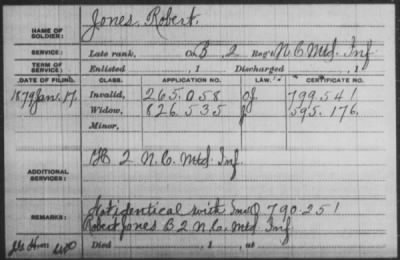 NAME OF SOLDIER: Jones, Robert.
SERVICE: Late rank, Co B, 2 Reg't N.C. Mtd. Inf
TERM OF SERVICE: Enlisted , 1 Discharged , 1
DATE OF FILING. CLASS. APPLICATION NO. LAW. CERTIFICATE NO.
1879 Jan. 17. Invalid, 265.058 799.541
Widow, 826.535 595.176.
Minor,
ADDITIONAL SERVICES: 2 N.C. Mtd. Inf.
REMARKS: Not identical with Inv O 790.251
Robert Jones B 2 N.C. Mtd Inf.
Died , 1 , at